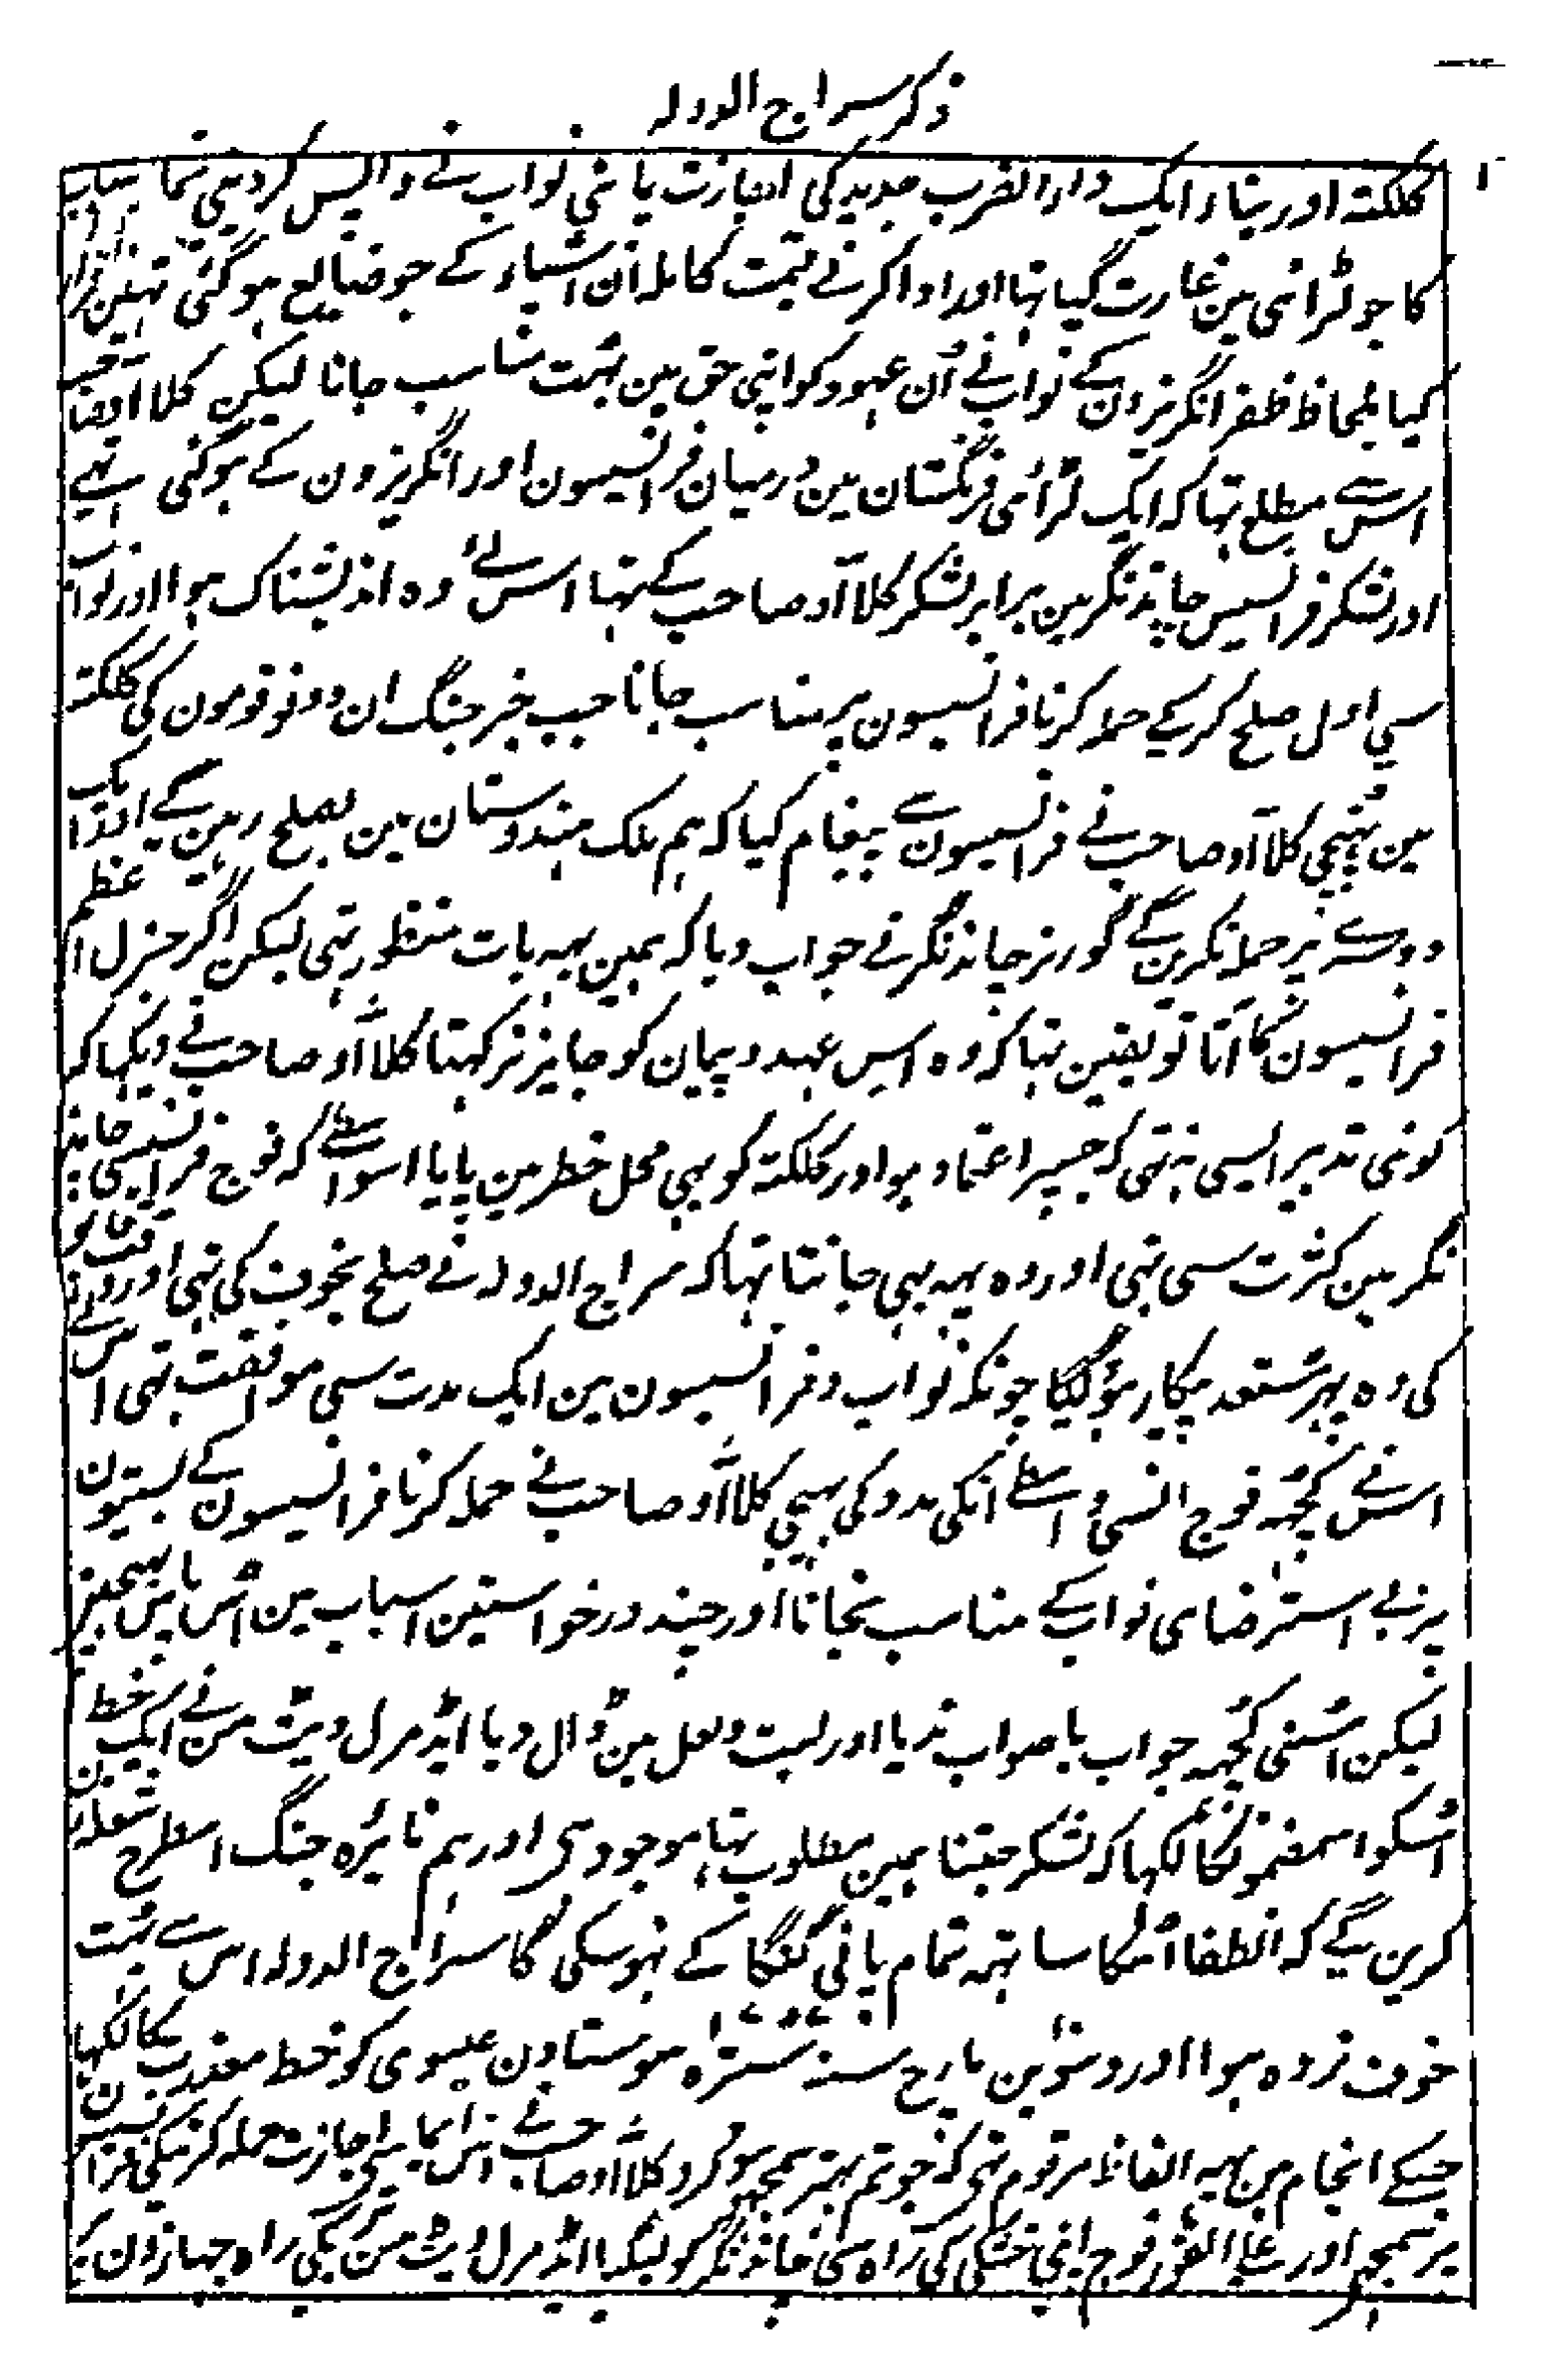 ذکر سراج الدولہ
کلکتہ اور بناء ایک دار الضرب جدید کی اجازت پائی نواب نے واپس کردینی تمام اسباب
کا جو لڑائی مین غارت گیا تہا اور ادا کرنے قیمت کاملہ اُن اشیاء کے جو ضایع ہوگئی تہین قرار
کیا بلحاظ ظفر انگریزون کے نواب نے اُن عہود کو اپنی حق مین بہت مناسب جانا لیکن کلاآو صاحب
اس سے مطلع تہا کہ ایک لڑائی فرنگستان مین درمیان فرانسیسون اور انگریزون کے ہوگئی ہے
اور لشکر فرانسیس چاندنگر مین برابر لشکر کلاآو صاحب کے تہا اس لئے وہ اندیشناک ہوا اور نواب
سی اول صلح کرکے حملہ کرنا فرانسیسون پر مناسب جانا جب خبر جنگ ان دونو قومون کی کلکتہ
مین پہنچی کلاآو صاحب نے فرانسیسون سے پیغام کیا کہ ہم ملک ہندوستان مین بصلح رہین گے اور ایک
دوسرے پر حملہ نکرین گے گورنر چاندنگر نے جواب دیا کہ ہمین یہہ بات منظور تہی لیکن اگر جنرل اعظم
فرانسیسون کا آتا تو یقین تہا کہ وہ اس عہد و پیمان کو جایز نرکہتا کلاآو صاحب نے دیکہا کہ
کوئی تدبیر ایسی نہ تہی کہ جسپر اعتماد ہو اور کلکتہ کو بہی محل خطر مین پایا اسواسطے کہ فوج فرانسیسی چاند
نگر مین کثرت سی تہی اور وہ یہہ بہی جانتا تہا کہ سراج الدولہ نے صلح بخوف کی تہی اور وقت قابو
کی وہ پہر مستعد پیکار ہوگیا چونکہ نواب و فرانسیسون مین ایک مدت سی موافقت تہی اس
اسنے کچہہ فوج اسی واسطے انکی مدد کی بہیجی کلاآو صاحب نے حملہ کرنا فرانسیسون کے بستیون
پر بے استرضای نواب کے مناسب نجانا اور چند درخواستین اسباب مین اُس پاس بہیجین
لیکن اسنی کچہہ جواب باصواب ندیا اور لیت و لعل مین ڈال دیا ایڈمرل ویٹ سن نے ایک خط
اسکو اس مضمون کا لکہا کہ لشکر جتنا ہمین مطلوب تہا موجود ہی اور ہم نایرہ جنگ اسطرح شعلہ زن
کرین گے کہ انطفا اُسکا ساتہہ تمام پانی گنگا کے نہوسکی گا سراج الدولہ اس سے بہت
خوف زدہ ہوا اور دسوین مارچ سنہ ۱۷۵۷ سترہ سو ستاون عیسوی کو خط معذرت کا لکہا
جسکے انجام مین یہہ الفاظ مرقوم تہی کہ جو تم بہتر سمجہو سو کرو کلاآو صاحب نے اس ایما سی اجازت حملہ کرنیکی فرانسیسون
پر سمجہی اور علی الفور فوج اپنی خشکی کی راہ سی چاندنگر کو لیگیا ایڈمرل ویٹ سن تری کی راہ جہازون